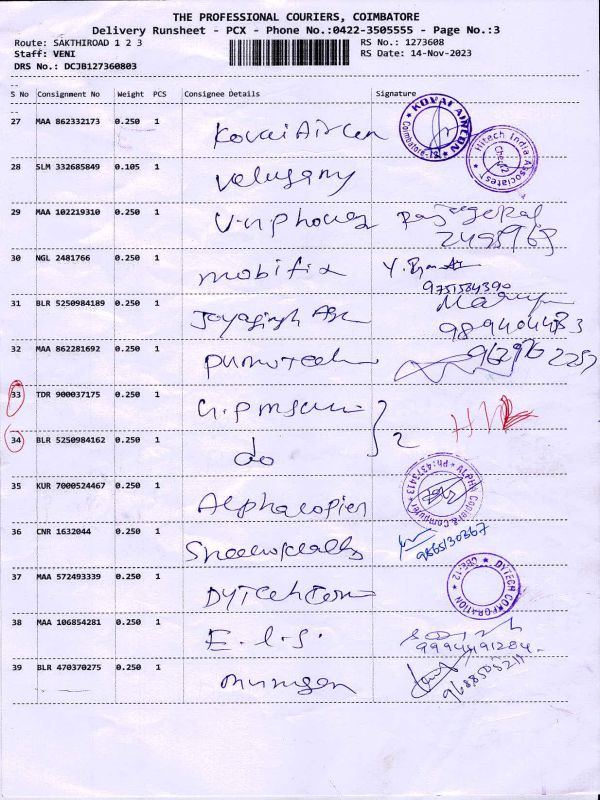 THE PROFESSIONAL COURIERS, COIMBATORE
Delivery Runsheet - PCX - Phone No.:0422-3505555 - Page No.:3
Route: SAKTHIROAD 1 2 3 RS No.: 1273608
Staff: VENI RS Date: 14-Nov-2023
DRS No.: DCJB127360803
S No Consignment No Weight PCS Consignee Details Signature
27 MAA 862332173 0.250 1 Kovai Aircon
KOVAI AIRCON Coimbatore-12
28 SLM 332685849 0.105 1 Velusamy
Hitech India Associates
29 MAA 102219310 0.250 1
30 NGL 2481766 0.250 1 mobifix
9751584390
31 BLR 5250984189 0.250 1
32 MAA 862281692 0.250 1
33 TDR 900037175 0.250 1
34 BLR 5250984162 0.250 1 do 2
35 KUR 7000524467 0.250 1 Alphacopier
ALPHA Copier & Computer Ph: 4373413
36 CNR 1632044 0.250 1
9865130367
37 MAA 572493339 0.250 1
DYTECH CORPORATION CBE-12
38 MAA 106854281 0.250 1 E.L.S.
9994491284
39 BLR 470370275 0.250 1 murugan